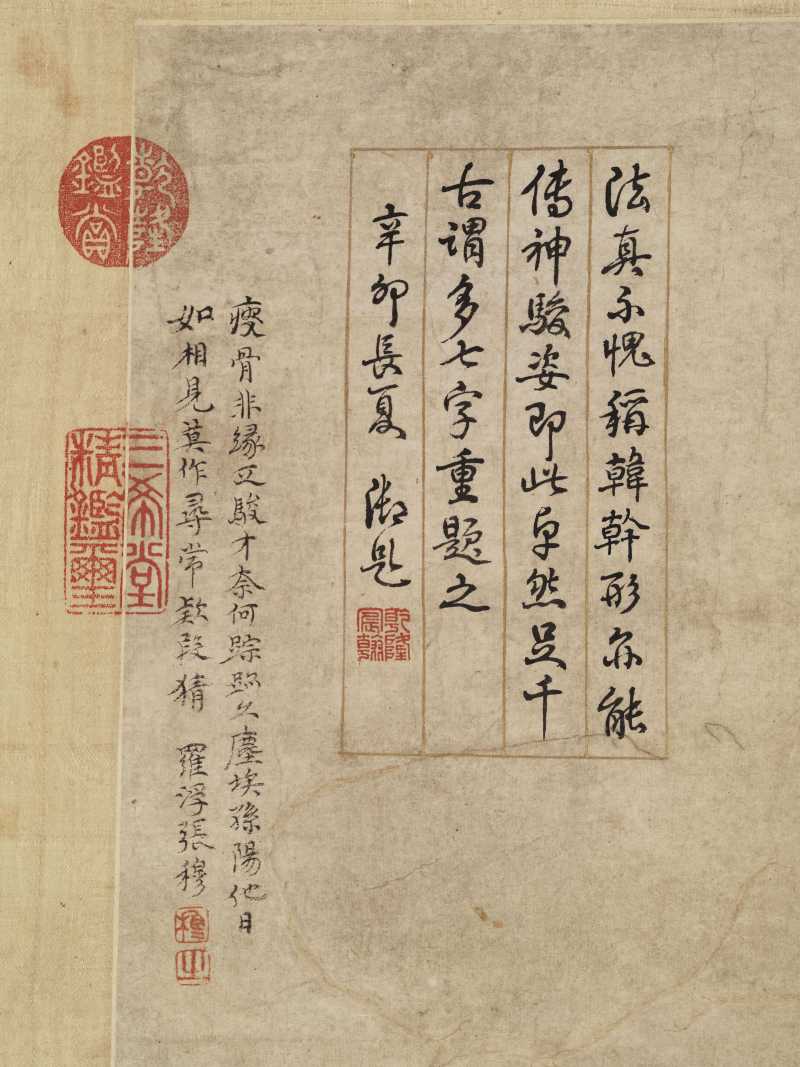 法真不愧稱韓幹形亦能
傳神駿姿即此卓然足千
古謂多七字重題之
辛卯長夏 御題
乾隆
宸翰
瘦骨非緣乏駿才奈何踪跡久塵埃孫陽他日
如相見莫作尋常款段猜 羅浮張穆
穆之
乾隆
鑑賞
三希堂
精鑑璽